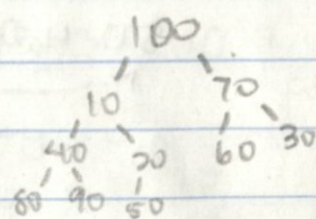 100
10 70
40 20 60 30
80 90 50